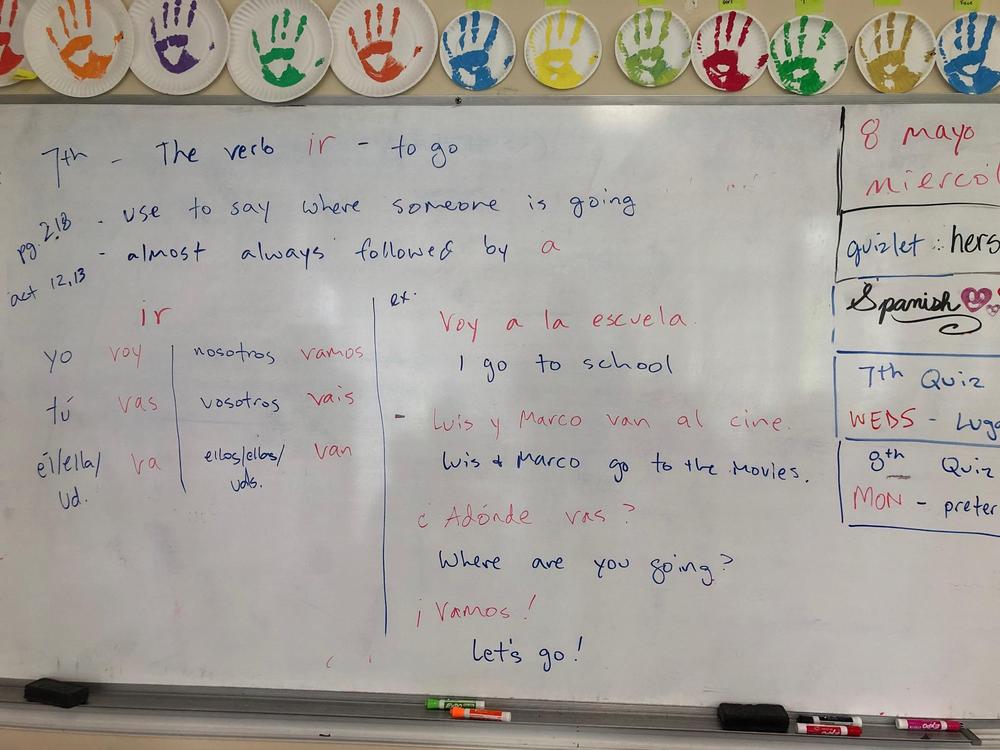 7th - The verb ir - to go
pg. 218
- use to say where someone is going
act 12,13
- almost always followed by a
ir
yo voy nosotros vamos
tú vas vosotros vais
él/ella/ va ellos/ellas/ van
Ud. uds.
ex:
Voy a la escuela
I go to school
- Luis y Marco van al cine.
Luis & Marco go to the Movies.
¿Adónde vas?
Where are you going?
¡Vamos!
Let's go!
8 mayo
miercol
quizlet: hers
Spanish
7th Quiz
WEDS - Luga
8th Quiz
MON - preter